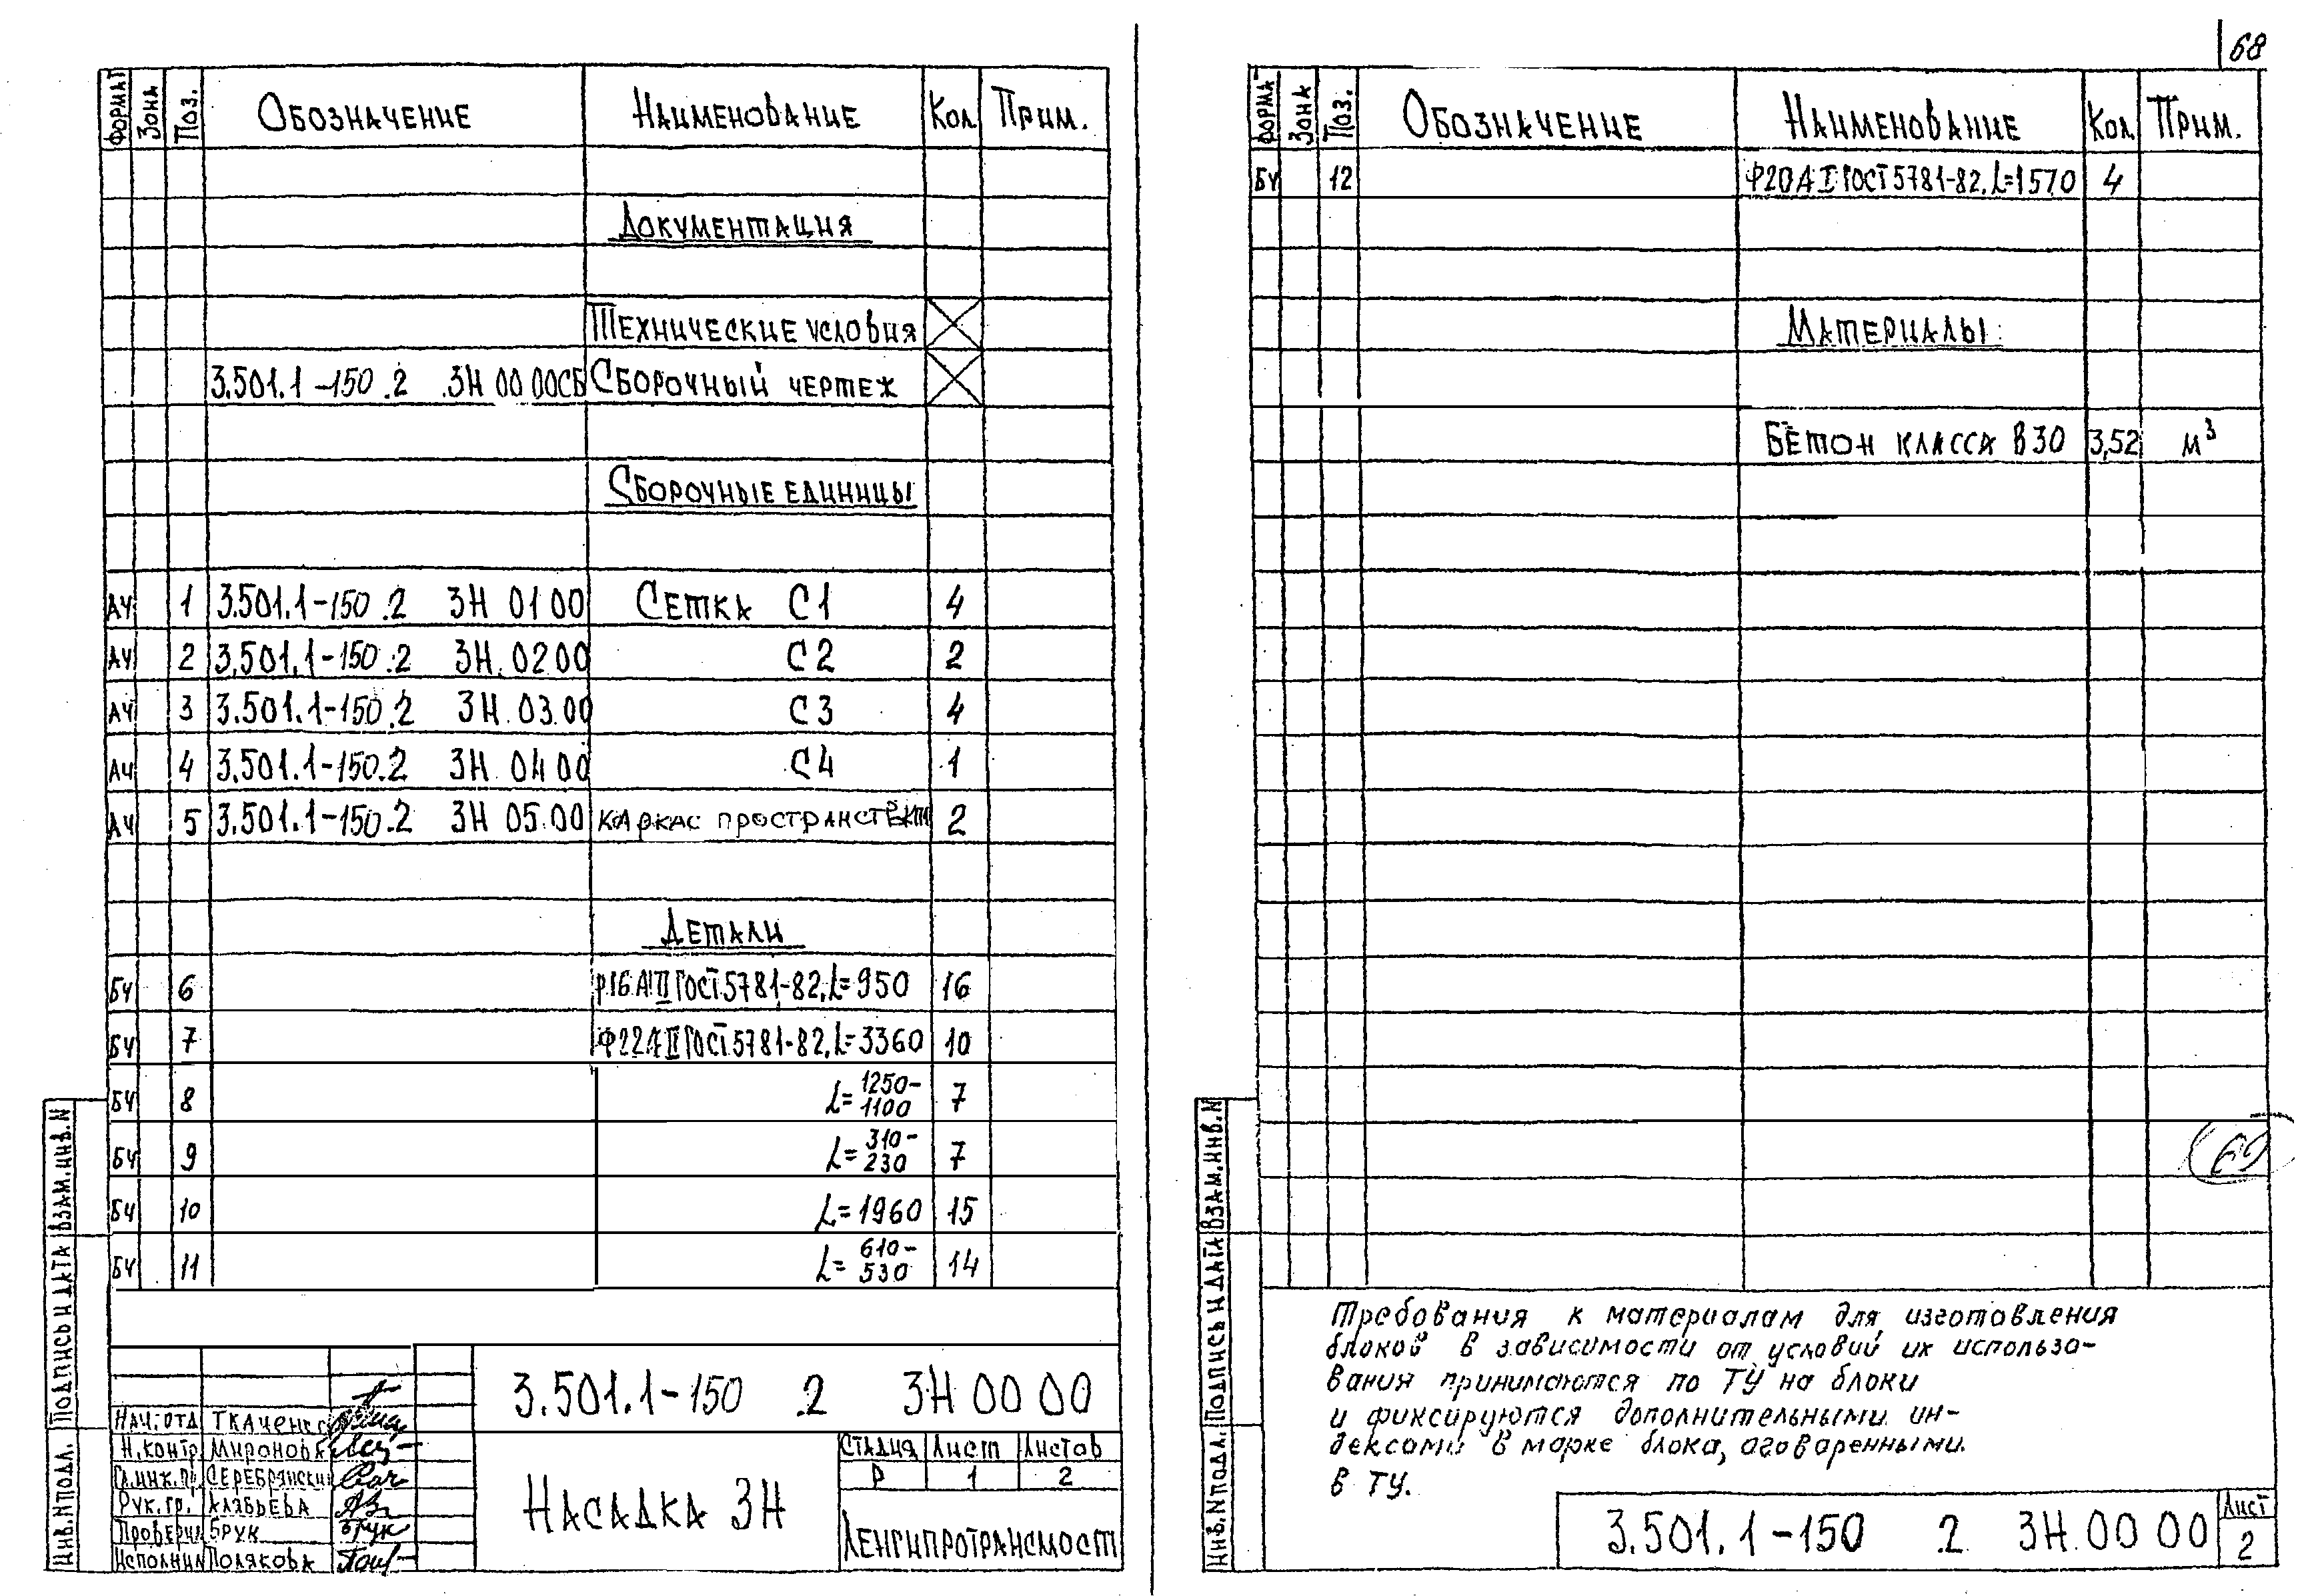 ФОРМАТ ЗОНА ПОЗ. ОБОЗНАЧЕНИЕ НАИМЕНОВАНИЕ КОЛ ПРИМ.
ДОКУМЕНТАЦИЯ
ТЕХНИЧЕСКИЕ УСЛОВИЯ
3.501.1-150.2 3Н 00 00СБ СБОРОЧНЫЙ ЧЕРТЕЖ
СБОРОЧНЫЕ ЕДИНИЦЫ
А4 1 3.501.1-150.2 3Н 01 00 СЕТКА С1 4
А4 2 3.501.1-150.2 3Н. 02 00 С2 2
А4 3 3.501.1-150.2 3Н. 03.00 С3 4
А4 4 3.501.1-150.2 3Н 04 00 С4 1
А4 5 3.501.1-150.2 3Н 05.00 КАРКАС 2
ДЕТАЛИ
БЧ 6 Ф16 АII ГОСТ 5781-82, L=950 16
БЧ 7 Ф22АII ГОСТ 5781-82, L=3360 10
БЧ 8 L=1250-1100 7
БЧ 9 L=310-230 7
БЧ 10 L=1960 15
БЧ 11 L=610-530 14
ИНВ.N ПОДЛ. ПОДПИСЬ И ДАТА ВЗАМ.ИНВ.N
НАЧ.ОТД ТКАЧЕНКО
Н.КОНТР МИРОНОВА
ГЛ.ИНЖ.ПР. СЕРЕБРЯНСКИЙ
РУК.ГР. АЛЯБЬЕВА
ПРОВЕРИЛ БРУК
ИСПОЛНИЛ ПОЛЯКОВА
3.501.1-150 .2 3Н 00 00
НАСАДКА 3Н
СТАДИЯ ЛИСТ ЛИСТОВ
Р 1 2
ЛЕНГИПРОТРАНСМОСТ
68
ФОРМА ЗОНА ПОЗ. ОБОЗНАЧЕНИЕ НАИМЕНОВАНИЕ КОЛ ПРИМ.
БЧ 12 Ф20АI ГОСТ 5781-82, L=1570 4
МАТЕРИАЛЫ:
БЕТОН КЛАССА В30 3,52 м³
69
Требования к материалам для изготовления
блоков в зависимости от условий их использо-
вания принимаются по ТУ на блоки
и фиксируются дополнительными ин-
дексами в марке блока, оговоренными
в ТУ.
ИНВ.N ПОДЛ. ПОДПИСЬ И ДАТА ВЗАМ.ИНВ.N
3.501.1-150 2 3Н.00 00
ЛИСТ
2